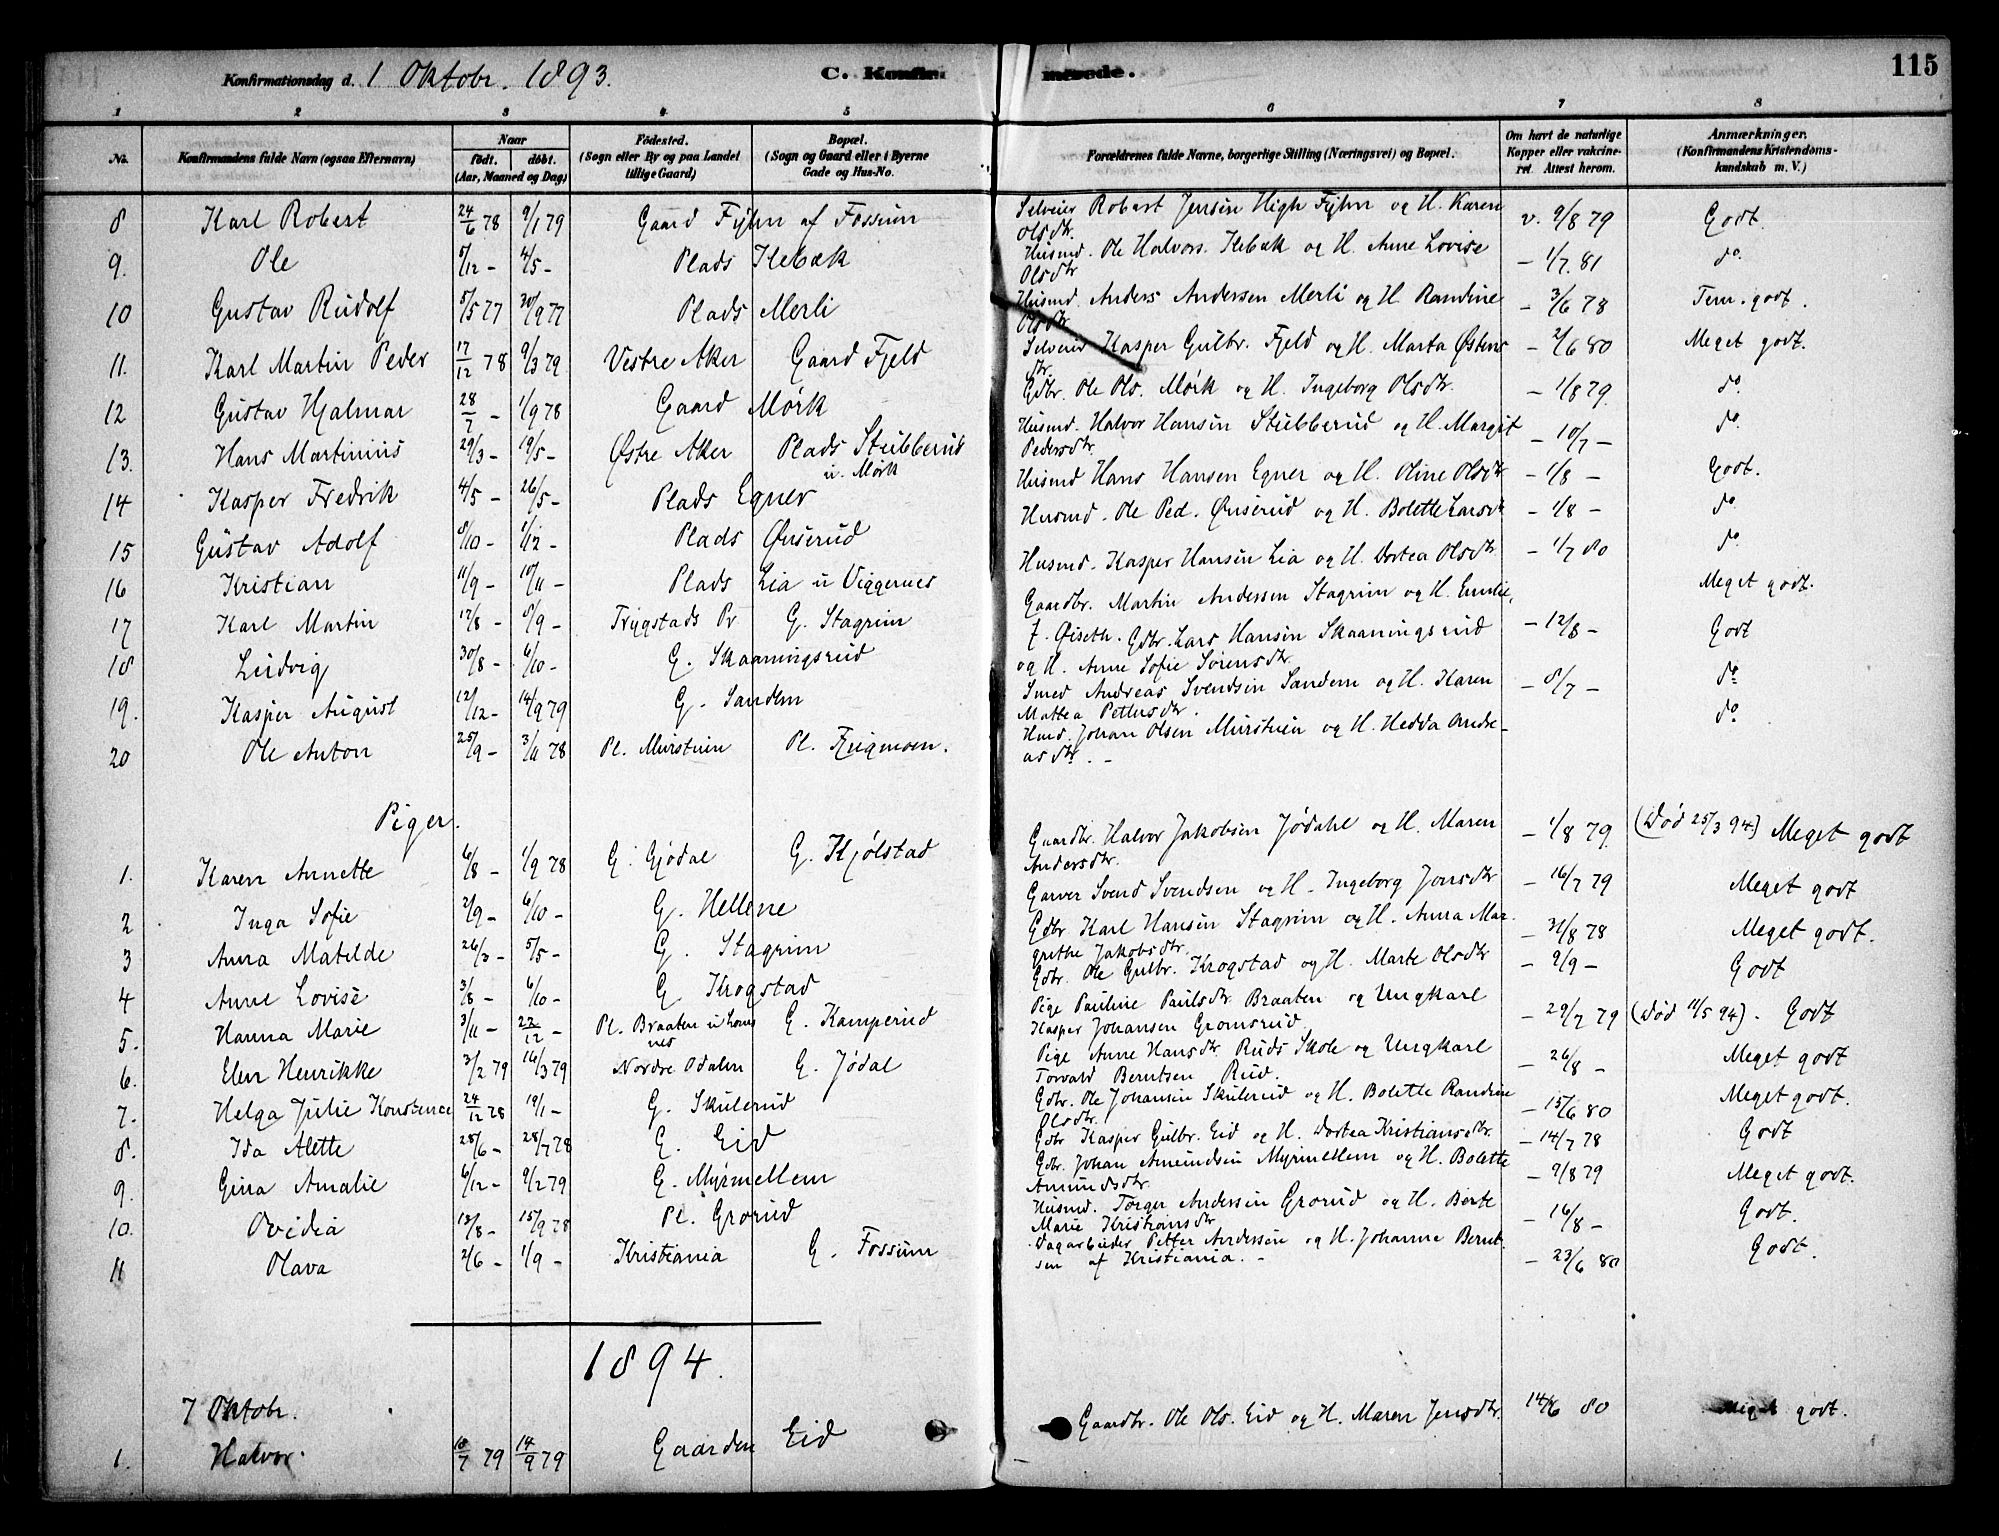 Konfirmationsdag d. 1 Oktobr. 1893. C. Konfirmerede. 115
1 2 3 4 5 6 7 8
No. Konfirmandens fulde Navn (ogsaa Efternavn) Naar født. døbt. (Aar, Maaned og Dag) Fødested. (Sogn eller By og paa Landet tillige Gaard) Bopæl. (Sogn og Gaard eller i Byerne Gade og Hus-No. Forældrenes fulde Navne, borgerlige Stilling (Næringsvei) og Bopæl. Om havt de naturlige Kopper eller vakcineret. Attest herom. Anmærkninger. (Konfirmandens Kristendomskundskab m. V.)
8 Karl Robert 24/6 78 9/1 79 Gaard Fyhn af Fossum Selveier Robert Jensen High Fyhn og H. Karen Olsdtr. v. 9/8 79 Godt.
9. Ole 5/12 – 4/5 – Plads Ilebæk Husmd. Ole Halvors. Ilebæk og H. Anne Lovise Olsdtr – 1/7 81 do
10 Gustav Rudolf 5/5 77 30/9 77 Plads Merli Husmd. Anders Andersen Merli og H. Randine Olsdtr – 3/6 78 Tem. godt.
11. Karl Martin Peder 17/12 78 9/3 79 Vestre Aker Gaard Fjeld Selveier Kasper Gulbr. Fjeld og H. Marta Østens dtr. – 2/6 80 Meget godt.
12 Gustav Hjalmar 28/7 – 1/9 78 Gaard Mørk Gdbr. Ole Ols. Mørk og H. Ingeborg Olsdtr. – 1/8 79. do
13. Hans Martinius 29/3 – 19/5 – Østre Aker Plads Stubberud u. Mørk Husmd. Halvor Hansen Stubberud og H. Margit Pedersdtr. – 10/7 – do
14 Kasper Fredrik 4/5 – 26/5 – Plads Egner Husmd Hans Hansen Egner og H. Oline Olsdtr – 1/8 – Godt.
15 Gustav Adolf 8/10 – 1/12 – Plads Ønserud Husmd. Ole Ped. Ønserud og H. Bolette Larsdtr – 1/8 – do
16 Kristian 11/9 – 10/11 – Plads Lia u Viggernes Husmd. Kasper Hansen Lia og H. Dortea Olsdtr – 1/7 80 do
17 Karl Martin 17/8 – 8/9 – Trygstads Pr G. Stagrim Gaardbr. Martin Andersen Stagrim og H. Emilie, Meget godt.
18 Ludvig 30/8 – 6/10 – G. Skaaningsrud f. Øiseth. Gdbr. Lars Hansen Skaaningsrud og H. Anne Sofie Sørensdtr. – 12/8 – Godt
19. Kasper August 12/12 – 14/9 79 G. Sandem Smed Andreas Svendsen Sandem og H. Karen Mattea Pettersdtr. – 8/7 – do
20 Ole Anton 25/9 – 3/11 78 Pl. Murstuen Pl. Husmd. Johan Olsen Murstuen og H. Hedda Andreasdtr. – do
Piger.
1. Karen Annette 6/8 – 1/9 78 G. Gjødal G. Kjølstad Gaardbr. Halvor Jakobsen Jødahl og H. Maren Andersdtr. – 1/8 79. (Død 25/3 94) Meget godt
2 Inga Sofie 2/9 – 6/10 – G. Hellene Garver Svend Svendsen og H. Ingeborg Jonsdtr – 16/7 79 Meget godt
3 Anna Matilde 26/3 – 5/5 – G. Stagrim Gdbr Karl Hansen Stagrim og H. Anna Margrethe Jakobsdtr. – 31/8 78 Meget godt.
4 Anne Lovise 3/8 – 6/10 – G Krogstad Gdbr. Ole Gulbr. Krogstad og H. Marte Olsdtr – 9/9 – Godt
5. Hanna Marie 3/11 – 22/12 – Pl. Braaten G. Kamperud Pige Pauline Paulsdtr. Braaten og Ungkarl Kasper Johansen Gromsrud. – 29/7 79 (Død 11/5 94). Godt
6. Elen Henrikke 3/2 79 16/3 79 Nordre Odalen G. Jødal Pige Anne Hansdtr Ruds Skole og Ungkarl Torvald Berntsen Rud. – 26/8 – Meget godt
7. Helga Julie Konstence 24/12 78 19/1 – G. Skulerud Gdbr. Ole Johansen Skulerud og H. Bolette Randine Olsdtr. – 15/6 80 Meget godt.
8. Ida Alette 28/6 – 28/7 78 G. Eid Gdbr Kasper Gulbr. Eid og H. Dortea Kristiansdtr. – 14/7 78 Godt
9. Gina Amalie 6/12 – 9/2 79 G. Myrmellem Gdbr. Johan Amundsen Myrmellem og H. Bolette Amundsdtr. – 9/8 79 Meget godt
10. Ovidia 13/8 – 15/9 78 Pl. Grorud Husmd. Torger Andersen Grorud og H. Berte Marie Kristiansdtr – 16/8 – Godt.
11 Olava 2/6 – 1/9 – Kristiania G. Fossum Dagarbeider Petter Andersen og H. Johanne Berntsen af Kristiania. – – 23/6 80 Godt.
1894.
7 Oktobr.
1. Halvor. 18/7 79 14/9 79 Gaarden Eid Gaardbr. Ole Ols. Eid og H. Maren Jensdtr. 14/6 80 Meget godt.